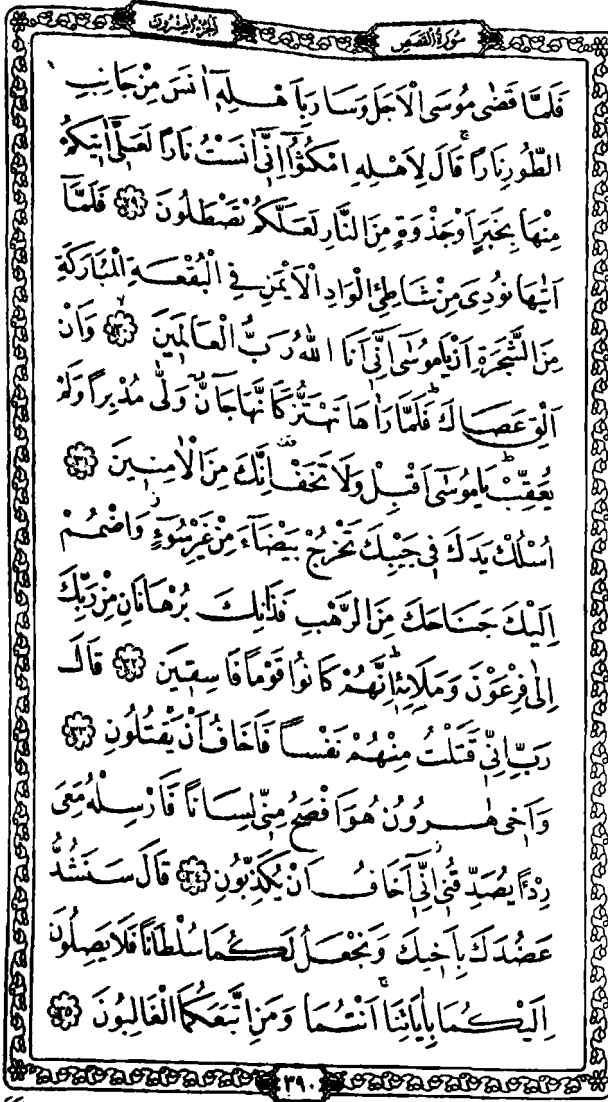 سُورَةُ الْقَصَصِ
اَلْجُزْءُ الْعِشْرُونَ
فَلَمَّا قَضٰى مُوسَى الْاَجَلَ وَسَارَ بِاَهْلِهٖٓ اٰنَسَ مِنْ جَانِبِ
الطُّورِ نَارًاۚ قَالَ لِاَهْلِهِ امْكُثُٓوا اِنّٖٓي اٰنَسْتُ نَارًا لَعَلّٖٓي اٰتٖيكُمْ
مِنْهَا بِخَبَرٍ اَوْ جَذْوَةٍ مِنَ النَّارِ لَعَلَّكُمْ تَصْطَلُونَ ﴿٢٩﴾ فَلَمَّٓا
اَتٰيهَا نُودِيَ مِنْ شَاطِئِ الْوَادِ الْاَيْمَنِ فِي الْبُقْعَةِ الْمُبَارَكَةِ
مِنَ الشَّجَرَةِ اَنْ يَا مُوسٰٓى اِنّٖٓي اَنَا اللّٰهُ رَبُّ الْعَالَمٖينَۙ ﴿٣٠﴾ وَاَنْ
اَلْقِ عَصَاكَۜ فَلَمَّا رَاٰهَا تَهْتَزُّ كَاَنَّهَا جَٓانٌّ وَلّٰى مُدْبِرًا وَلَمْ
يُعَقِّبْۜ يَا مُوسٰٓى اَقْبِلْ وَلَا تَخَفْ۠ اِنَّكَ مِنَ الْاٰمِنٖينَ ﴿٣١﴾
اُسْلُكْ يَدَكَ فٖي جَيْبِكَ تَخْرُجْ بَيْضَٓاءَ مِنْ غَيْرِ سُٓوءٍۘ وَاضْمُمْ
اِلَيْكَ جَنَاحَكَ مِنَ الرَّهْبِ فَذَانِكَ بُرْهَانَانِ مِنْ رَبِّكَ
اِلٰى فِرْعَوْنَ وَمَلَا۬ئِهٖۜ اِنَّهُمْ كَانُوا قَوْمًا فَاسِقٖينَ ﴿٣٢﴾ قَالَ
رَبِّ اِنّٖي قَتَلْتُ مِنْهُمْ نَفْسًا فَاَخَافُ اَنْ يَقْتُلُونِ ﴿٣٣﴾
وَاَخٖي هٰرُونُ هُوَ اَفْصَحُ مِنّٖي لِسَانًا فَاَرْسِلْهُ مَعِيَ
رِدْءًا يُصَدِّقُنٖيۘ اِنّٖٓي اَخَافُ اَنْ يُكَذِّبُونِ ﴿٣٤﴾ قَالَ سَنَشُدُّ
عَضُدَكَ بِاَخٖيكَ وَنَجْعَلُ لَكُمَا سُلْطَانًا فَلَا يَصِلُونَ
اِلَيْكُمَاۚ بِاٰيَاتِنَاۚ اَنْتُمَا وَمَنِ اتَّبَعَكُمَا الْغَالِبُونَ ﴿٣٥﴾
٣٩٠